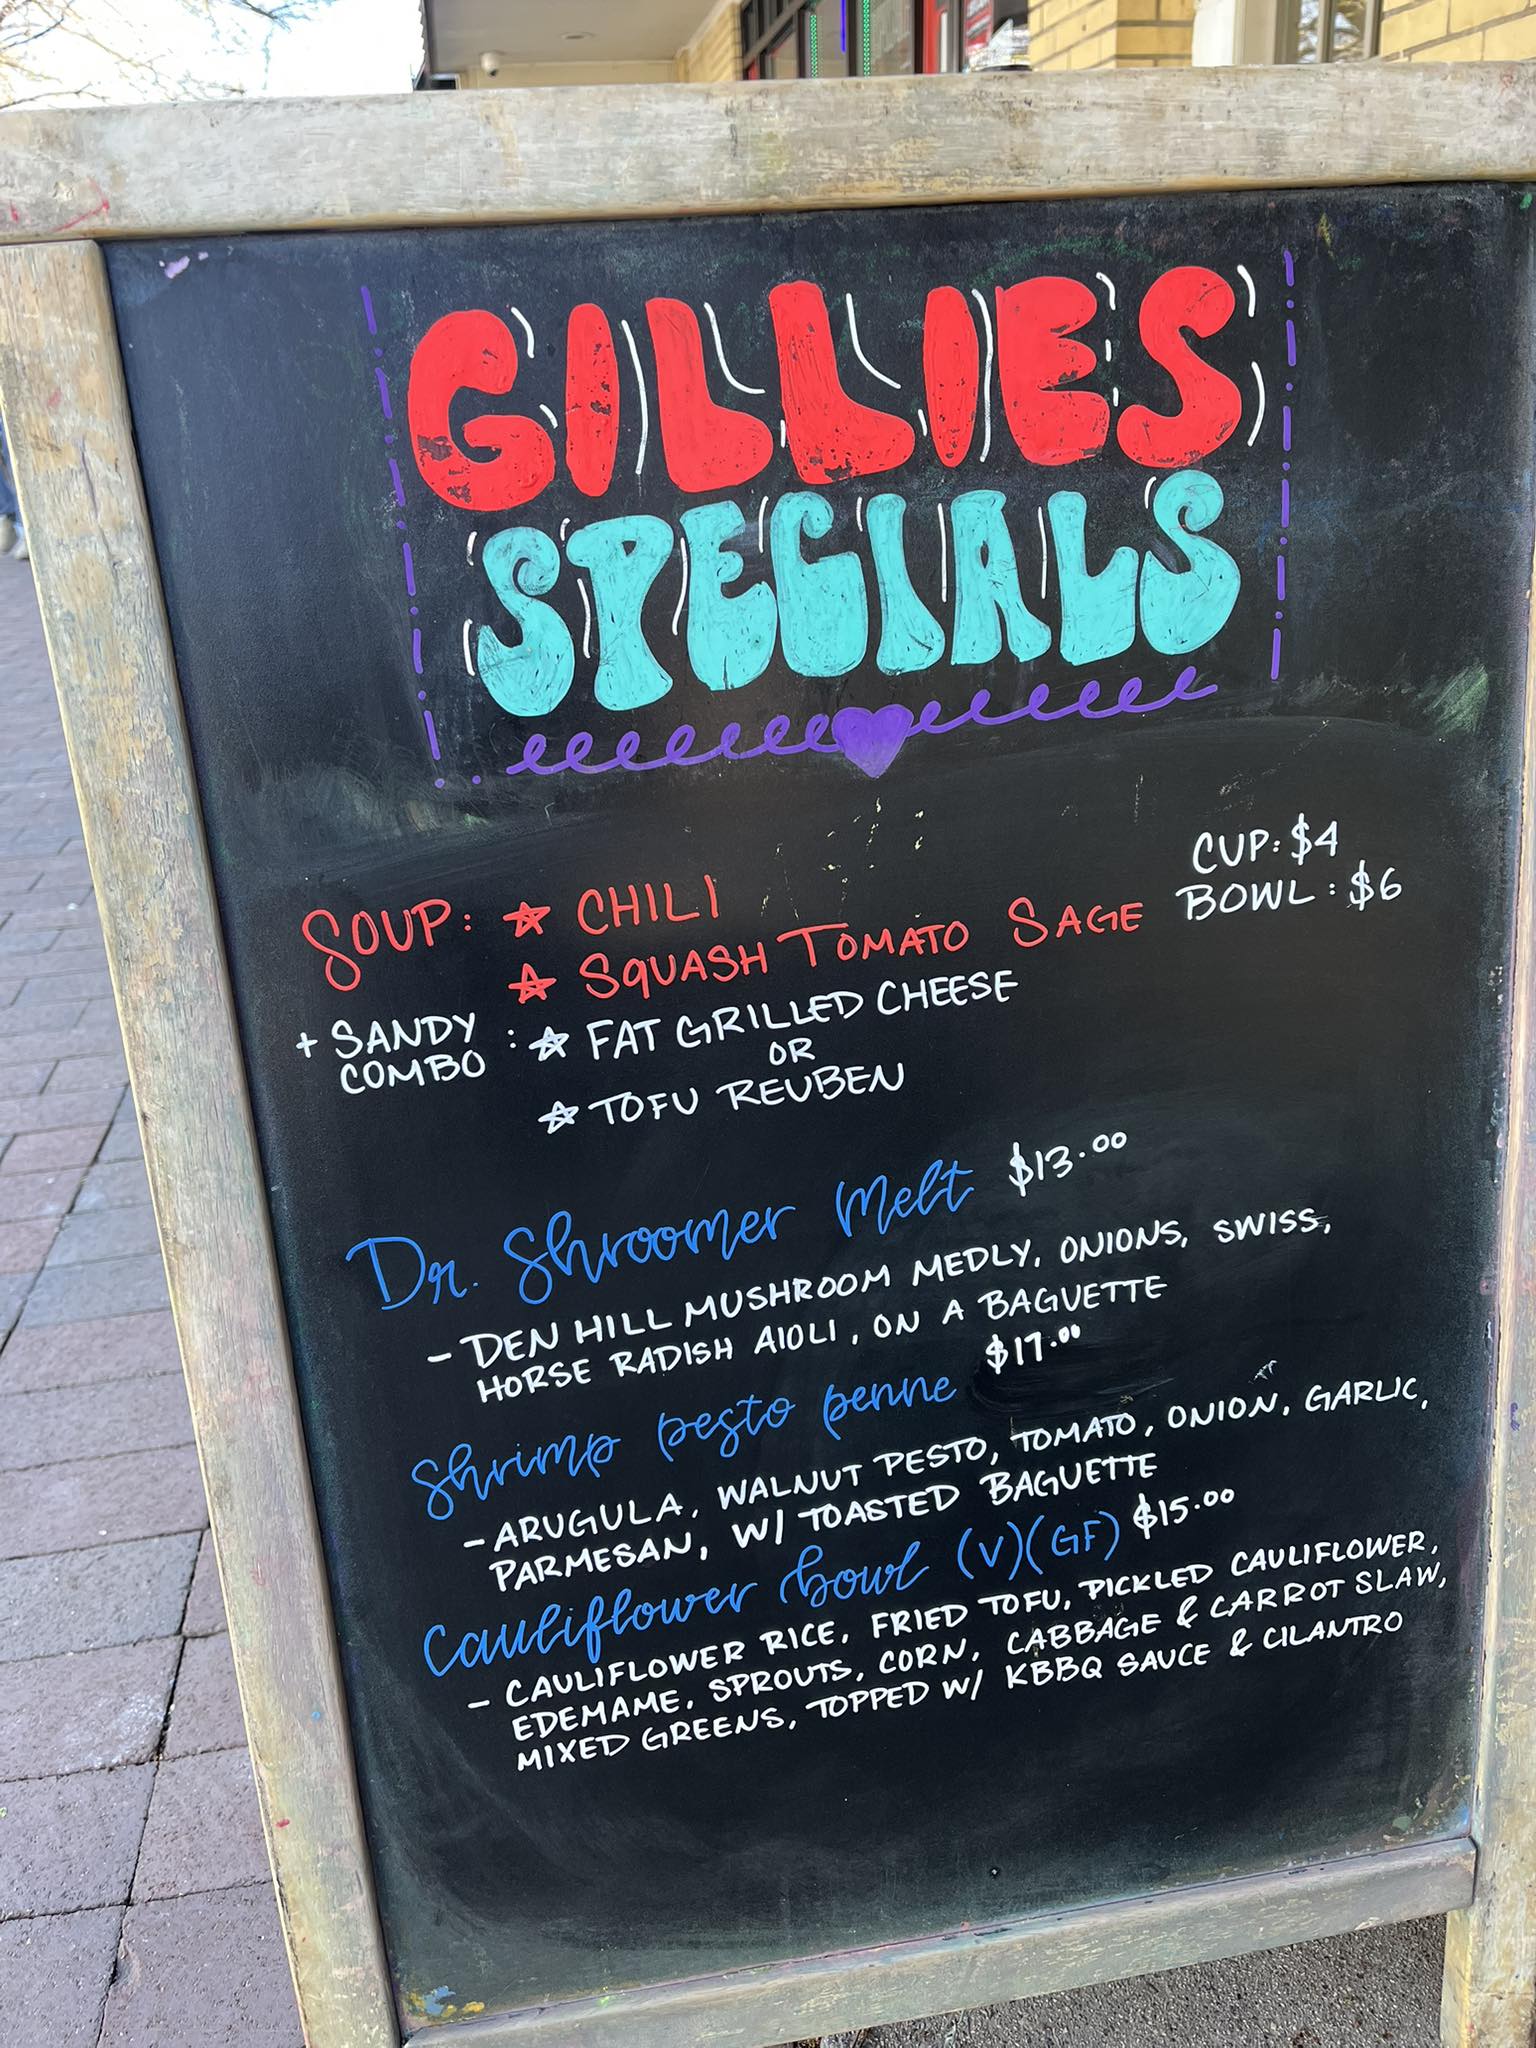 GILLIES
SPECIALS
CUP: $4
SOUP: ☆ CHILI
BOWL: $6
☆ SQUASH TOMATO SAGE
+ SANDY COMBO : ☆ FAT GRILLED CHEESE
OR
☆ TOFU REUBEN
Dr. Shroomer Melt $13.00
- DEN HILL MUSHROOM MEDLY, ONIONS, SWISS,
HORSE RADISH AIOLI, ON A BAGUETTE
Shrimp pesto penne $17.00
- ARUGULA, WALNUT PESTO, TOMATO, ONION, GARLIC,
PARMESAN, W/ TOASTED BAGUETTE
Cauliflower bowl (V)(GF) $15.00
- CAULIFLOWER RICE, FRIED TOFU, PICKLED CAULIFLOWER,
EDEMAME, SPROUTS, CORN, CABBAGE & CARROT SLAW,
MIXED GREENS, TOPPED W/ KBBQ SAUCE & CILANTRO